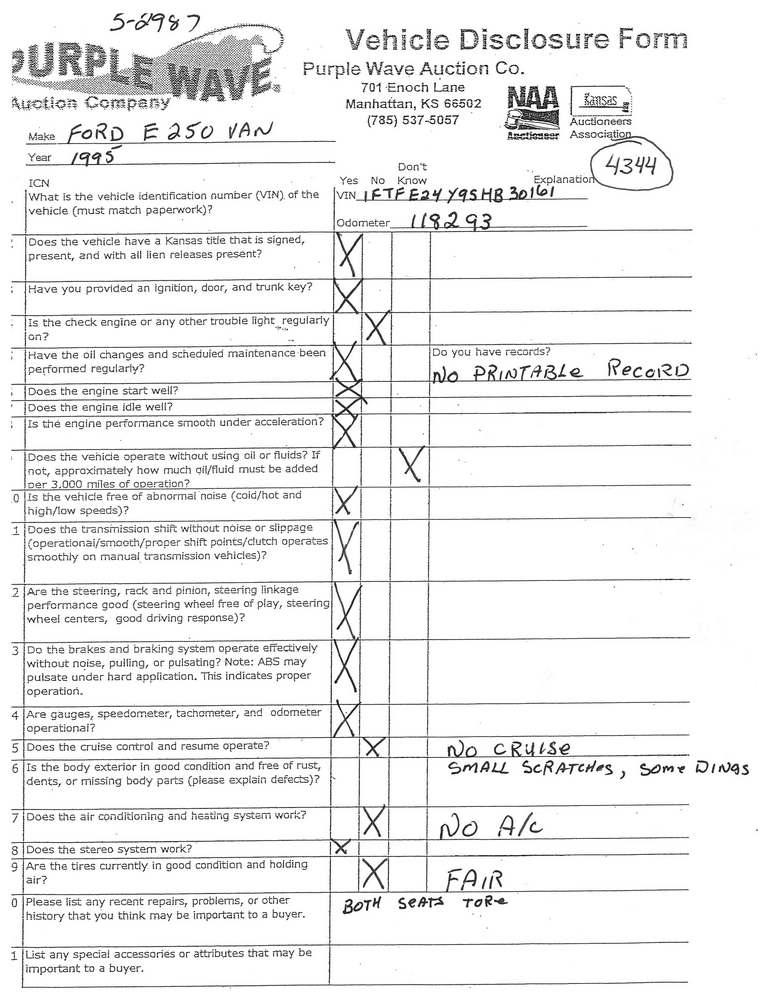 5-2987
PURPLE WAVE.
Auction Company
Vehicle Disclosure Form
Purple Wave Auction Co.
701 Enoch Lane
Manhattan, KS 66502
(785) 537-5057
NAA
Auctioneer
Kansas
Auctioneers
Association
Make FORD E 250 VAN
Year 1995
4344
ICN
Yes No Don't Know Explanation
What is the vehicle identification number (VIN) of the
vehicle (must match paperwork)?
VIN 1FTFE24Y9SHB30161
Odometer 118293
Does the vehicle have a Kansas title that is signed,
present, and with all lien releases present?
X
Have you provided an ignition, door, and trunk key?
X
Is the check engine or any other trouble light regularly
on?
X
Have the oil changes and scheduled maintenance been
performed regularly?
X
Do you have records?
NO PRINTABLE RECORD
Does the engine start well?
X
Does the engine idle well?
X
Is the engine performance smooth under acceleration?
X
Does the vehicle operate without using oil or fluids? If
not, approximately how much oil/fluid must be added
per 3,000 miles of operation?
X
0 Is the vehicle free of abnormal noise (cold/hot and
high/low speeds)?
X
1 Does the transmission shift without noise or slippage
(operational/smooth/proper shift points/clutch operates
smoothly on manual transmission vehicles)?
X
2 Are the steering, rack and pinion, steering linkage
performance good (steering wheel free of play, steering
wheel centers, good driving response)?
X
3 Do the brakes and braking system operate effectively
without noise, pulling, or pulsating? Note: ABS may
pulsate under hard application. This indicates proper
operation.
X
4 Are gauges, speedometer, tachometer, and odometer
operational?
X
5 Does the cruise control and resume operate?
X NO CRUISE
6 Is the body exterior in good condition and free of rust,
dents, or missing body parts (please explain defects)?
SMALL SCRATCHES, SOME DINGS
7 Does the air conditioning and heating system work?
X NO A/C
8 Does the stereo system work?
X
9 Are the tires currently in good condition and holding
air?
X FAIR
0 Please list any recent repairs, problems, or other
history that you think may be important to a buyer.
BOTH SEATS TORE
1 List any special accessories or attributes that may be
important to a buyer.